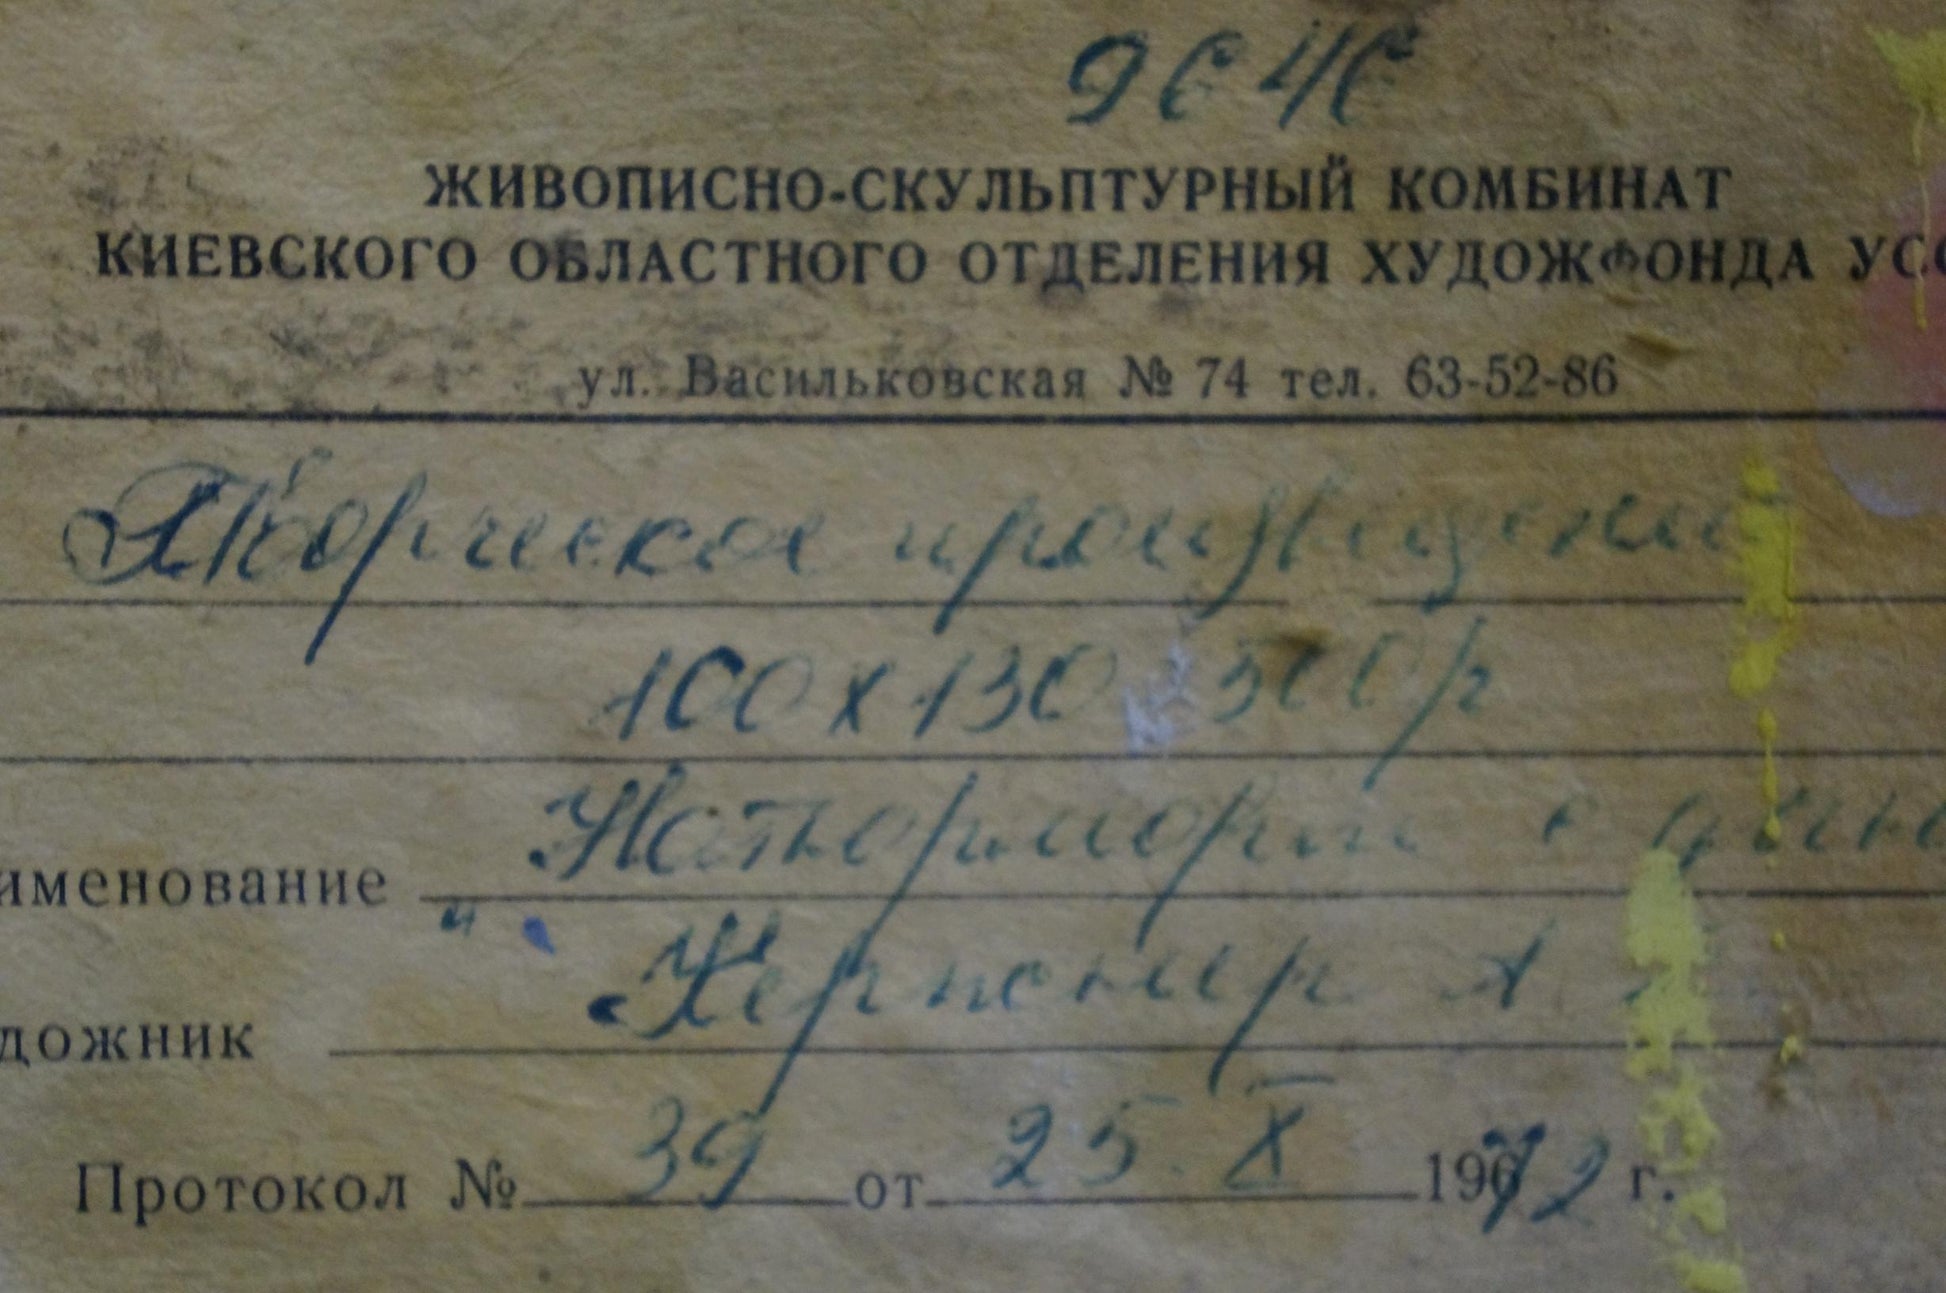 ЖИВОПИСНО-СКУЛЬПТУРНЫЙ КОМБИНАТ
КИЕВСКОГО ОБЛАСТНОГО ОТДЕЛЕНИЯ ХУДОЖФОНДА УСС
ул. Васильковская № 74 тел. 63-52-86
Творческое произведение
100х130 500р
именование Натюрморт с
дожник
Протокол № 39 от 25.X 1972 г.